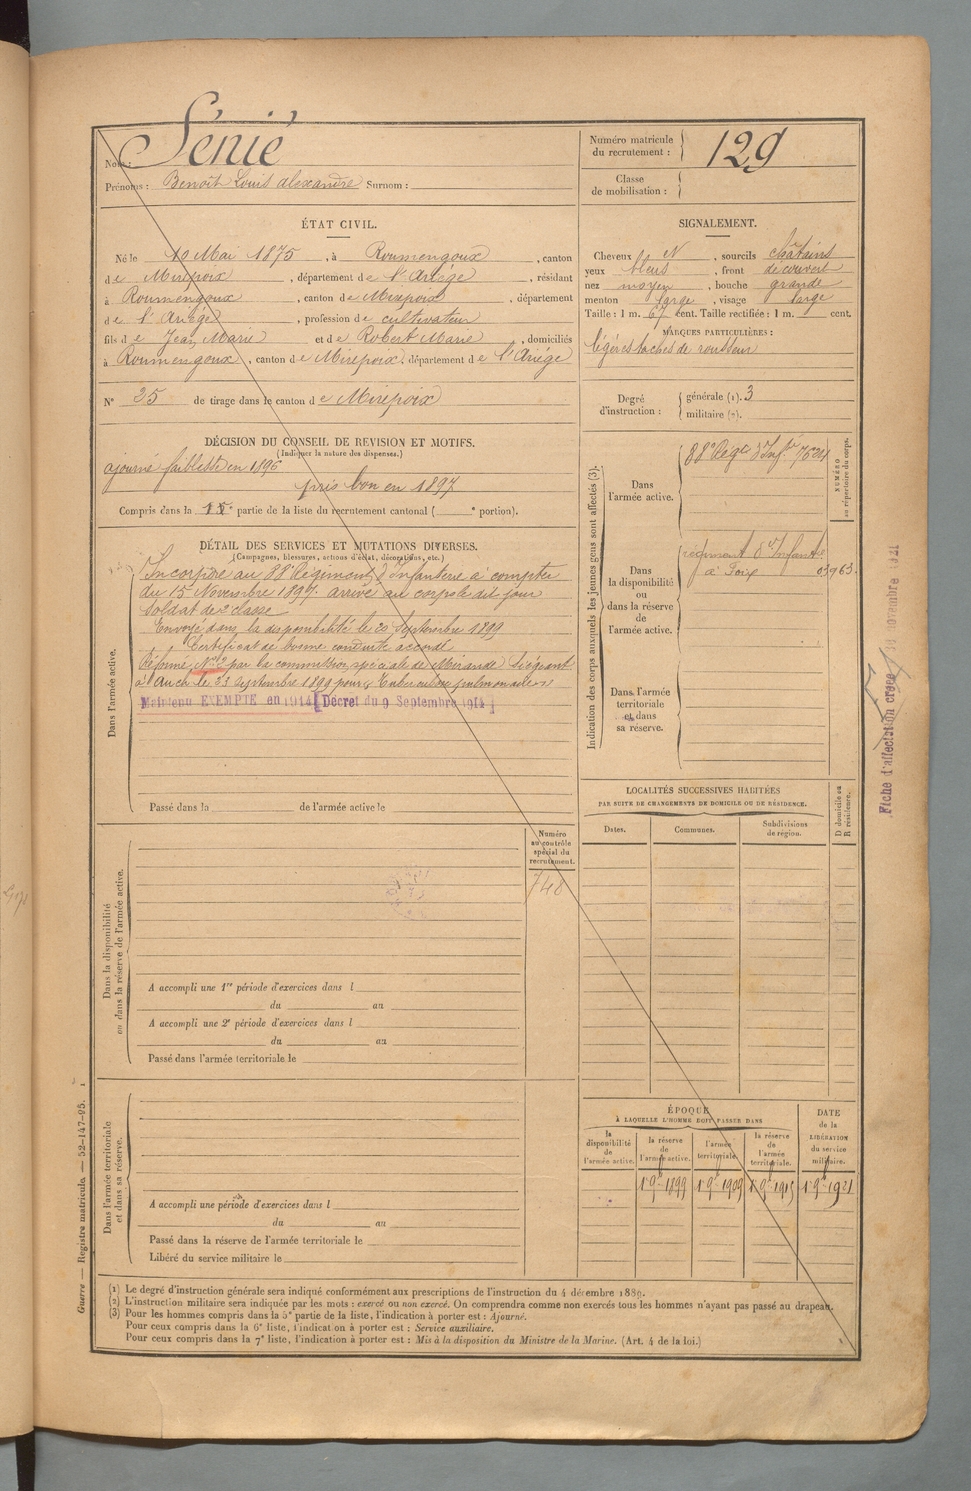 Nom : Sénié
Prénoms : Benoît Louis alexandre Surnom :
Numéro matricule du recrutement : 129
Classe de mobilisation :
ÉTAT CIVIL.
Né le 10 Mai 1875, à Roumengoux, canton
de Mirepoix, département de l'Ariége, résidant
à Roumengoux, canton de Mirepoix, département
de l'Ariége, profession de cultivateur
fils de Jean Marie et de Robert Marie, domiciliés
à Roumengoux, canton de Mirepoix, département de l'Ariége
N° 25 de tirage dans le canton de Mirepoix
SIGNALEMENT.
Cheveux N, sourcils châtains
yeux bleus, front découvert
nez moyen, bouche grande
menton large, visage large
Taille : 1 m. 67 cent. Taille rectifiée : 1 m. cent.
MARQUES PARTICULIÈRES :
légères taches de rousseur
Degré d'instruction : générale (1). 3
militaire (2).
DÉCISION DU CONSEIL DE REVISION ET MOTIFS.
(Indiquer la nature des dispenses.)
ajourné faiblesse en 1896
pris bon en 1897
Compris dans la 1re partie de la liste du recrutement cantonal ( e portion).
DÉTAIL DES SERVICES ET MUTATIONS DIVERSES.
(Campagnes, blessures, actions d'éclat, décorations, etc.)
Dans l'armée active.
Incorporé au 88e Régiment d'Infanterie à compter
du 15 Novembre 1897. arrivé au corps le dit jour
Soldat de 2e classe
Envoyé dans la disponibilité le 20 Septembre 1899
Certificat de bonne conduite accordé
Réformé N° 2 par la commission spéciale de Mirande siégeant
à Auch le 23 Septembre 1899 pour Tuberculose pulmonaire
Maintenu EXEMPTE en 1914 [Décret du 9 Septembre 1914]
Passé dans la de l'armée active le
Indication des corps auxquels les jeunes gens sont affectés (3).
NUMÉRO au répertoire du corps.
Dans l'armée active.
88e Rég. d'Infie
Dans la disponibilité ou dans la réserve de l'armée active.
régiment d'Infanterie
à Foix 03963
Dans l'armée territoriale et dans sa réserve.
Fiche d'affectation créée novembre 1921
LOCALITÉS SUCCESSIVES HABITÉES
PAR SUITE DE CHANGEMENTS DE DOMICILE OU DE RÉSIDENCE.
D domicile ou R résidence.
Dates. Communes. Subdivisions de région.
Numéro au contrôle spécial du recrutement.
748
Dans la disponibilité ou dans la réserve de l'armée active.
A accompli une 1re période d'exercices dans l
du au
A accompli une 2e période d'exercices dans l
du au
Passé dans l'armée territoriale le
Dans l'armée territoriale et dans sa réserve.
A accompli une période d'exercices dans l
du au
Passé dans la réserve de l'armée territoriale le
Libéré du service militaire le
ÉPOQUE
À LAQUELLE L'HOMME DOIT PASSER DANS
DATE de la LIBÉRATION du service militaire.
la disponibilité de l'armée active.
la réserve de l'armée active.
l'armée territoriale.
la réserve de l'armée territoriale.
1 9bre 1899 1 9bre 1909 1 9bre 1915 1 9bre 1921
(1) Le degré d'instruction générale sera indiqué conformément aux prescriptions de l'instruction du 4 décembre 1889.
(2) L'instruction militaire sera indiquée par les mots : exercé ou non exercé. On comprendra comme non exercés tous les hommes n'ayant pas passé au drapeau.
(3) Pour les hommes compris dans la 5e partie de la liste, l'indication à porter est : Ajourné.
Pour ceux compris dans la 6e liste, l'indication à porter est : Service auxiliaire.
Pour ceux compris dans la 7e liste, l'indication à porter est : Mis à la disposition du Ministre de la Marine. (Art. 4 de la loi.)
Guerre — Registre matricule. — 52-147-95.